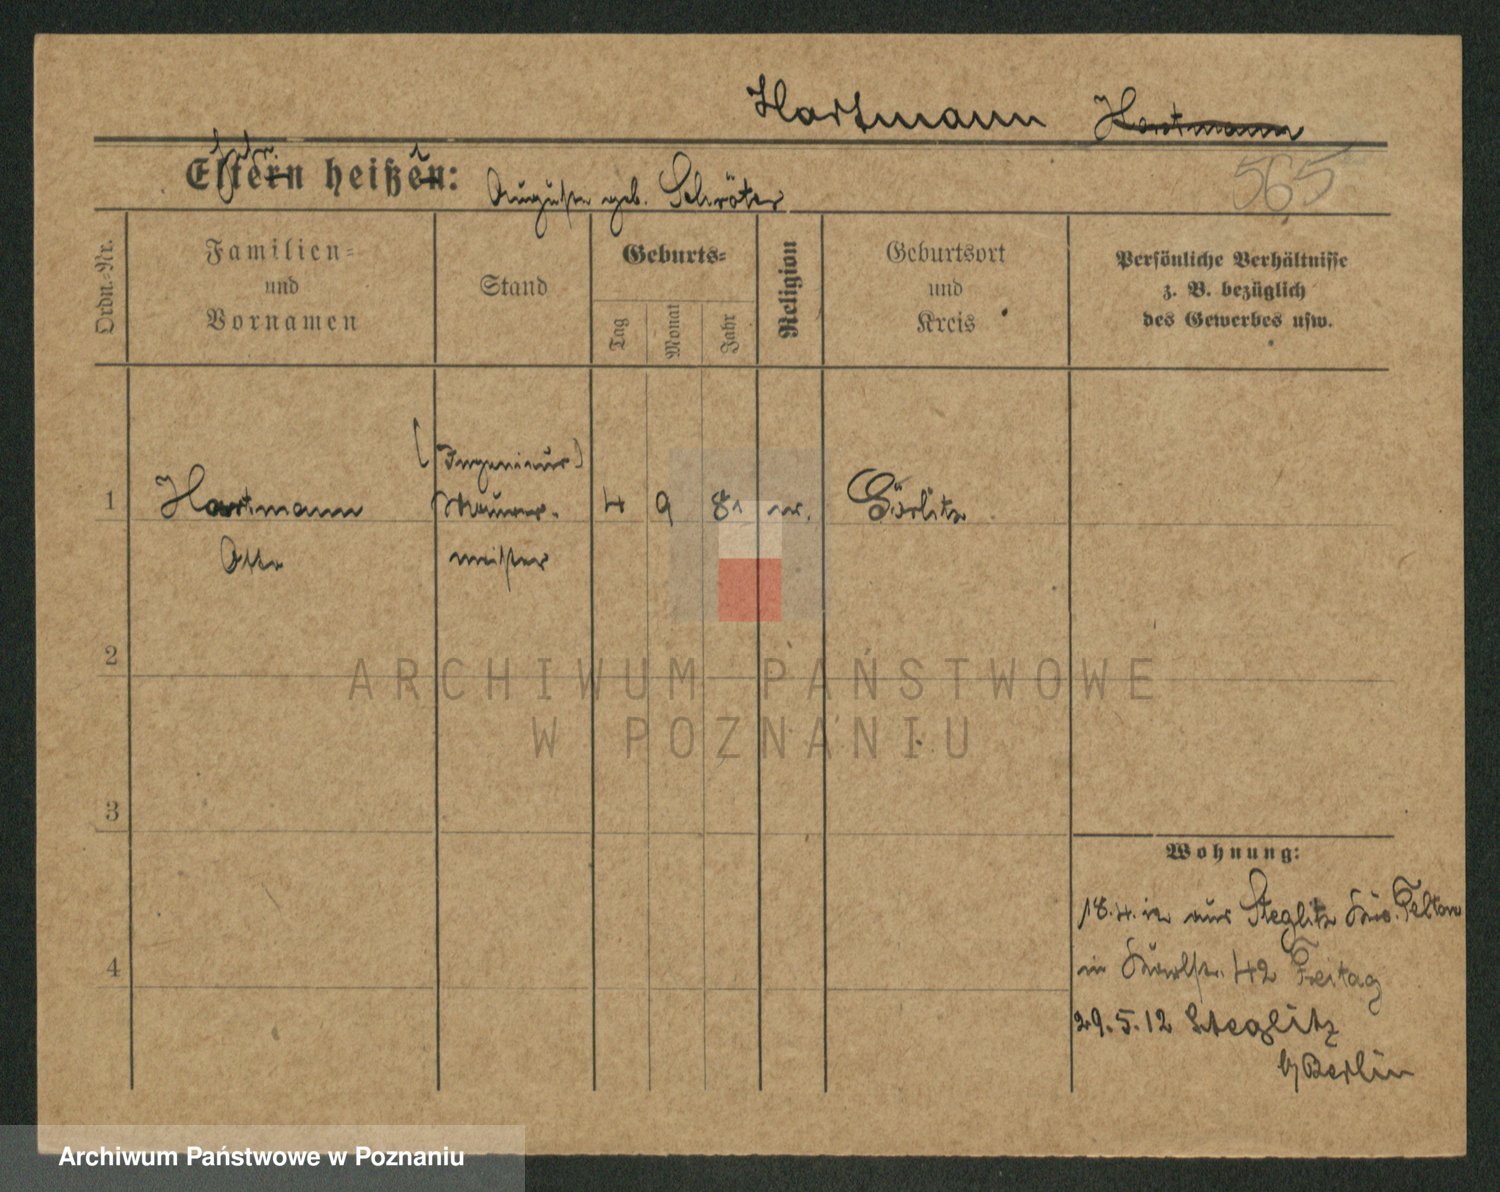 Hartmann Hartmann
565
Eltern heißen: Auguste geb. Schröter
Ordn.-Nr.
Familien-
und
Vornamen
Stand
Geburts-
Tag
Monat
Jahr
Religion
Geburtsort
und
Kreis
Persönliche Verhältnisse
z. B. bezüglich
des Gewerbes usw.
(Ingenieur)
1 Hartmann Maurer- 4 9 81 Görlitz
Otto meister
2
ARCHIWUM PAŃSTWOWE
W POZNANIU
3
Wohnung:
18.4.12 aus Steglitz Krs. Teltow
4
in 42 Freitag
29.5.12 Steglitz
b/Berlin
Archiwum Państwowe w Poznaniu